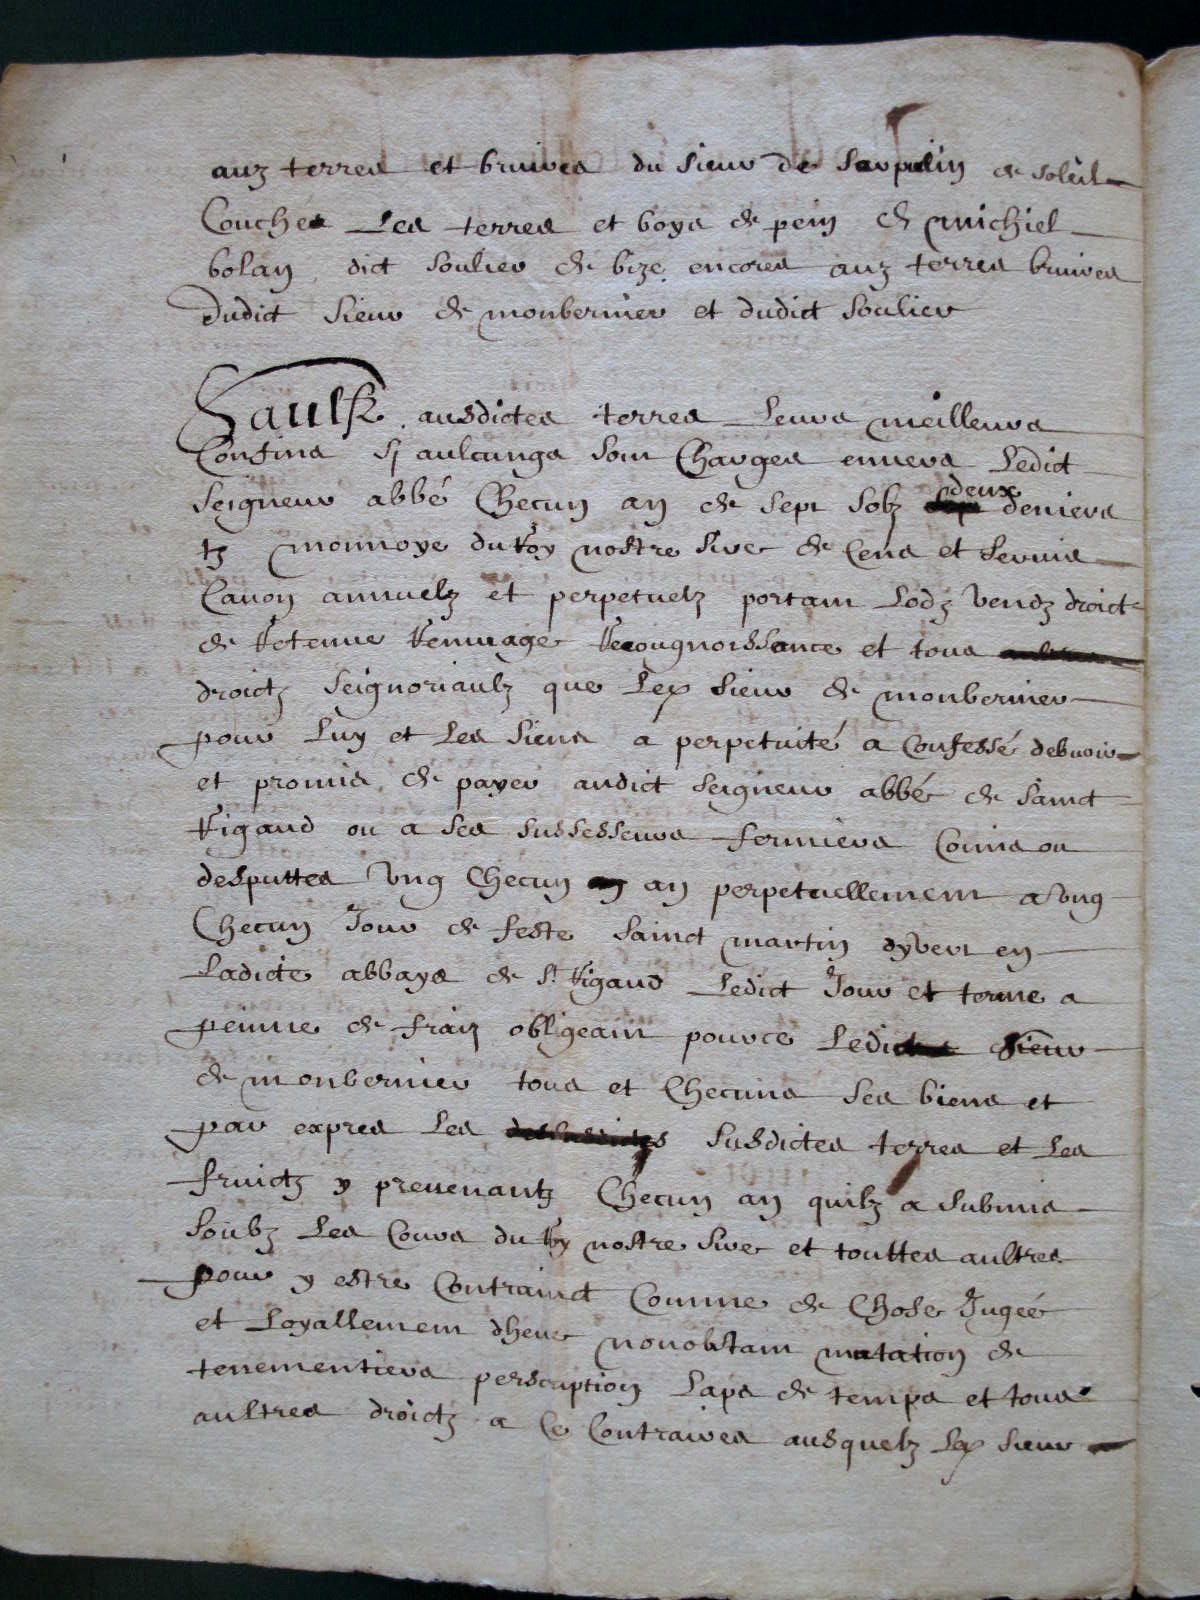 auz terres et bruires du sieur de Sarpulin de soleil
Couches Les terres et boys de pein de michiel
bolan dict soulier de bize encores auz terres bruires
dudict sieur de monbernier et dudict soulier
Saulfz ausdictes terres Leurs meilleurs
Confins Sy aulcungs Sont Charges envers Ledict
Seigneur abbé Checun an de sept solz deux deniers
tz monnoye du Roy nostre sire de Cens et servis
Canon annuelz et perpetuelz portant Lodz Vendz droict
de Retenue Remuage Recougnoissance et tous
droictz seignoriaulz que Led sieur de monbernier
pour Luy et Les siens a perpetuité a Confessé debvoir
et promis de payer audict seigneur abbé de sainct
Rigaud ou a ses sussesseurs fermiers Comis ou
desputtes Vng Checun an perpetuellement a Vng
Checun Jour de feste sainct martin dyvert en
Ladicte abbaye de St Rigaud Ledict Jour et terme a
peinne de fraiz obligeant pource Ledict sieur
de monbernier tous et Checuns ses biens et
par expres Les susdictes terres et Les
fruictz y prevenantz Checun an quilz a submis
soubz Les Cours du Roy nostre sire et touttes aultres
pour y estre Contrainct Comme de Chose Jugéé
et Loyallement dheue nonobstant mutation de
tenementiers perscription Laps de temps et tous
aultres droictz a Ce Contraires ausquelz Led sieur